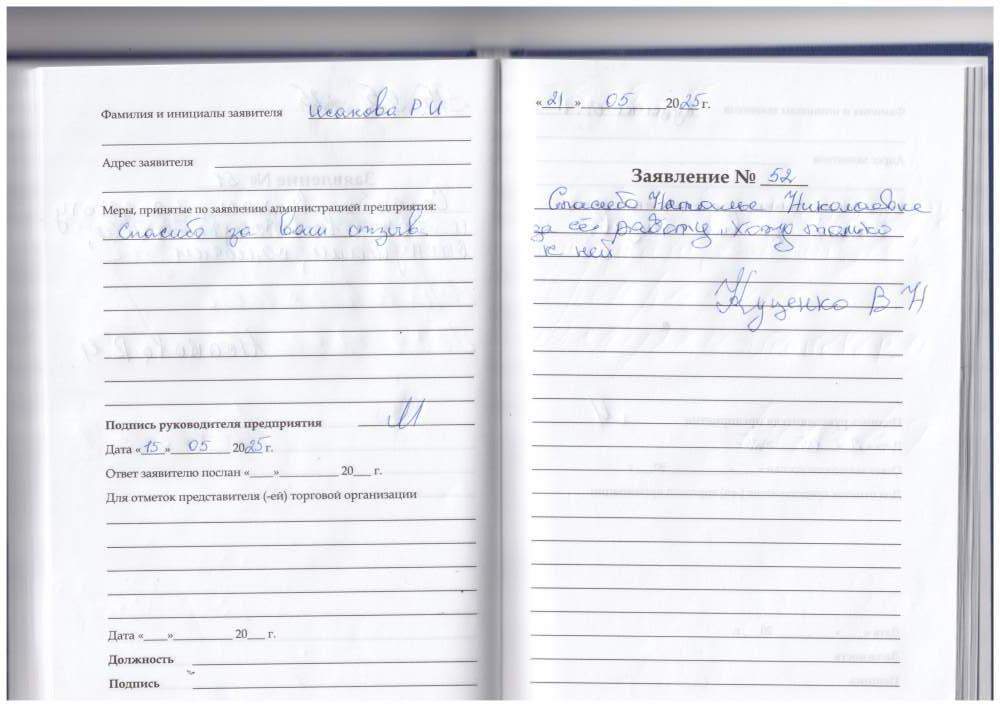 Фамилия и инициалы заявителя Исакова Р И
Адрес заявителя
Меры, принятые по заявлению администрацией предприятия:
Спасибо за ваш отзыв
Подпись руководителя предприятия
Дата «15» 05 2025 г.
Ответ заявителю послан «____»__________ 20___ г.
Для отметок представителя (-ей) торговой организации
Дата «____»__________ 20___ г.
Должность
Подпись
«21» 05 2025 г.
Заявление № 52
Спасибо Наталье Николаевне
за её работу, хожу только
к ней
Куценко В Н